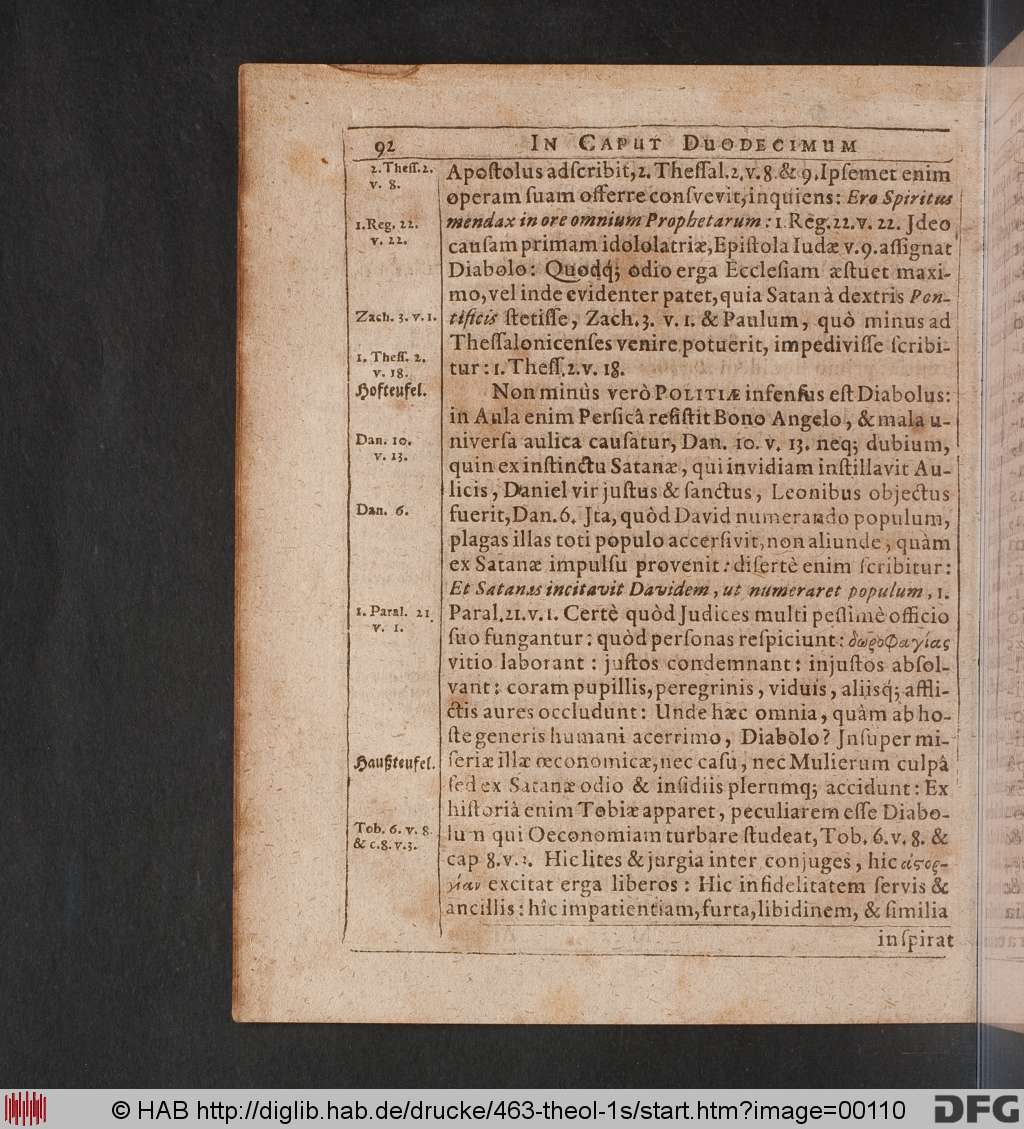 92 IN CAPUT DUODECIMUM
2. Theſſ. 2.
v. 8.
1. Reg. 22.
v. 22.
Zach. 3. v. 1.
1. Theſſ. 2.
v. 18.
Hofteufel.
Dan. 10.
v. 13.
Dan. 6.
1. Paral. 21.
v. 1.
Haußteufel.
Tob. 6. v. 8.
& c. 8. v. 3.
Apoſtolus adſcribit, 2. Theſſal. 2. v. 8. & 9. Ipſemet enim
operam ſuam offerre conſvevit, inquiens: Ero Spiritus
mendax in ore omnium Prophetarum: 1. Reg. 22. v. 22. Jdeo
cauſam primam idololatriæ, Epiſtola Iudæ v. 9. aſſignat
Diabolo: Quodq́; odio erga Eccleſiam æſtuet maxi-
mo, vel inde evidenter patet, quia Satan à dextris Pon-
tificis ſtetiſſe, Zach. 3. v. 1. & Paulum, quò minus ad
Theſſalonicenſes venire potuerit, impediviſſe ſcribi-
tur: 1. Theſſ. 2. v. 18.
Non minùs verò POLITIÆ infenſus eſt Diabolus:
in Aula enim Perſicâ reſiſtit Bono Angelo, & mala u-
niverſa aulica cauſatur, Dan. 10. v. 13. neq; dubium,
quin ex inſtinctu Satanæ, qui invidiam inſtillavit Au-
licis, Daniel vir juſtus & ſanctus, Leonibus objectus
fuerit, Dan. 6. Jta, quòd David numerando populum,
plagas illas toti populo accerſivit, non aliunde, quàm
ex Satanæ impulſu provenit: diſertè enim ſcribitur:
Et Satanas incitavit Davidem, ut numeraret populum, 1.
Paral. 21. v. 1. Certè quòd Judices multi peſſimè officio
ſuo fungantur: quòd perſonas reſpiciunt: δωροφαγίας
vitio laborant: juſtos condemnant: injuſtos abſol-
vant: coram pupillis, peregrinis, viduis, aliisq́; affli-
ctis aures occludunt: Unde hæc omnia, quàm ab ho-
ſte generis humani acerrimo, Diabolo? Jnſuper mi-
ſeriæ illæ œconomicæ, nec caſu, nec Mulierum culpâ
ſed ex Satanæ odio & inſidiis plerumq; accidunt: Ex
hiſtoriâ enim Tobiæ apparet, peculiarem eſſe Diabo-
lum qui Oeconomiam turbare ſtudeat, Tob. 6. v. 8. &
cap 8. v. 3. Hic lites & jurgia inter conjuges, hic ἀϛορ-
γίαν excitat erga liberos: Hic infidelitatem ſervis &
ancillis: hîc impatientiam, furta, libidinem, & ſimilia
inſpirat
© HAB http://diglib.hab.de/drucke/463-theol-1s/start.htm?image=00110
DFG